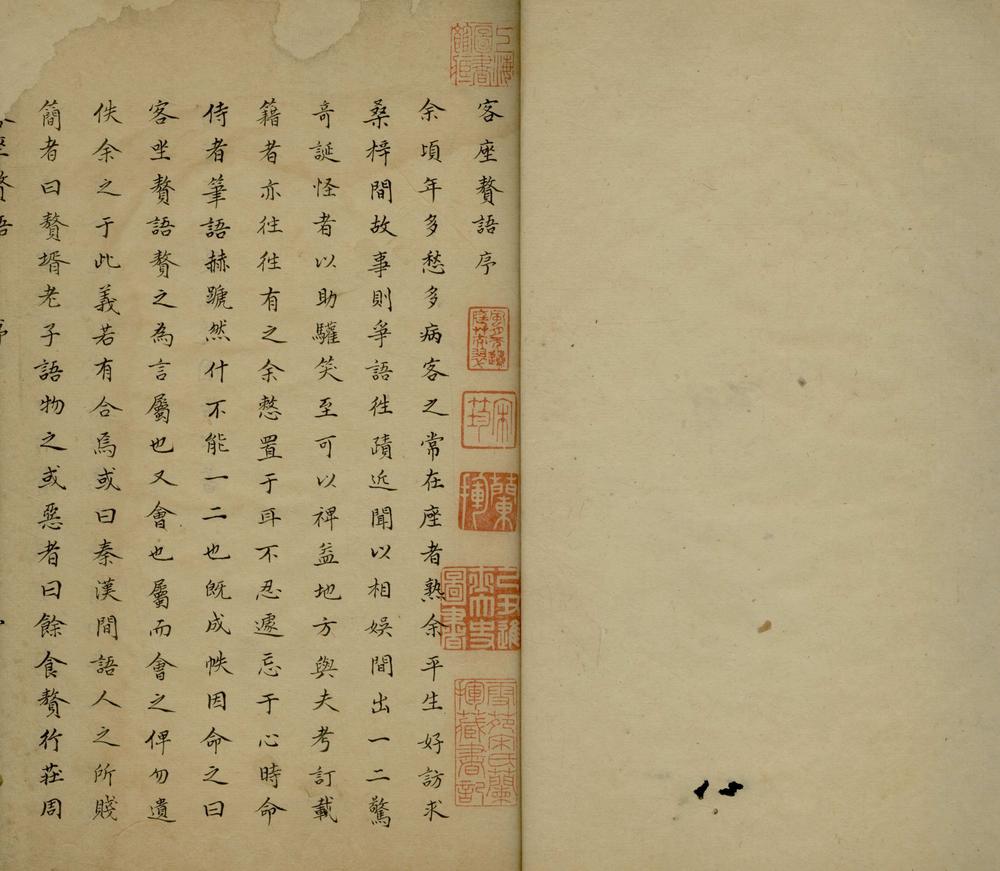 客座贅語序
余頃年多愁多病客之常在座者熟余平生好訪求
桑梓間故事則爭語徃蹟近聞以相娛間出一二驚
奇誕怪者以助驩笑至可以裨益地方與夫考訂載
籍者亦徃徃有之余愸置于耳不忍遽忘于心時命
侍者筆語赫蹏然什不能一二也既成帙因命之曰
客坐贅語贅之為言屬也又會也屬而會之俾勿遺
佚余之于此義若有合焉或曰秦漢間語人之所賤
簡者曰贅壻老子語物之或惡者曰餘食贅行莊周
上海圖書館藏
宋筠
蘭揮
圖書
雪苑宋氏蘭揮藏書記